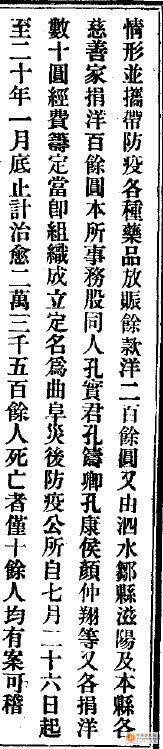 情形並攜帶防疫各種藥品放賑餘款洋二百餘圓又由泗水鄒縣滋陽及本縣各
慈善家捐洋百餘圓本所事務股同人孔實君孔鑄卿孔康侯顏仲翔等又各捐洋
數十圓經費籌定當卽組織成立定名爲曲阜災後防疫公所自七月二十六日起
至二十年一月底止計治愈二萬三千五百餘人死亡者僅十餘人均有案可稽